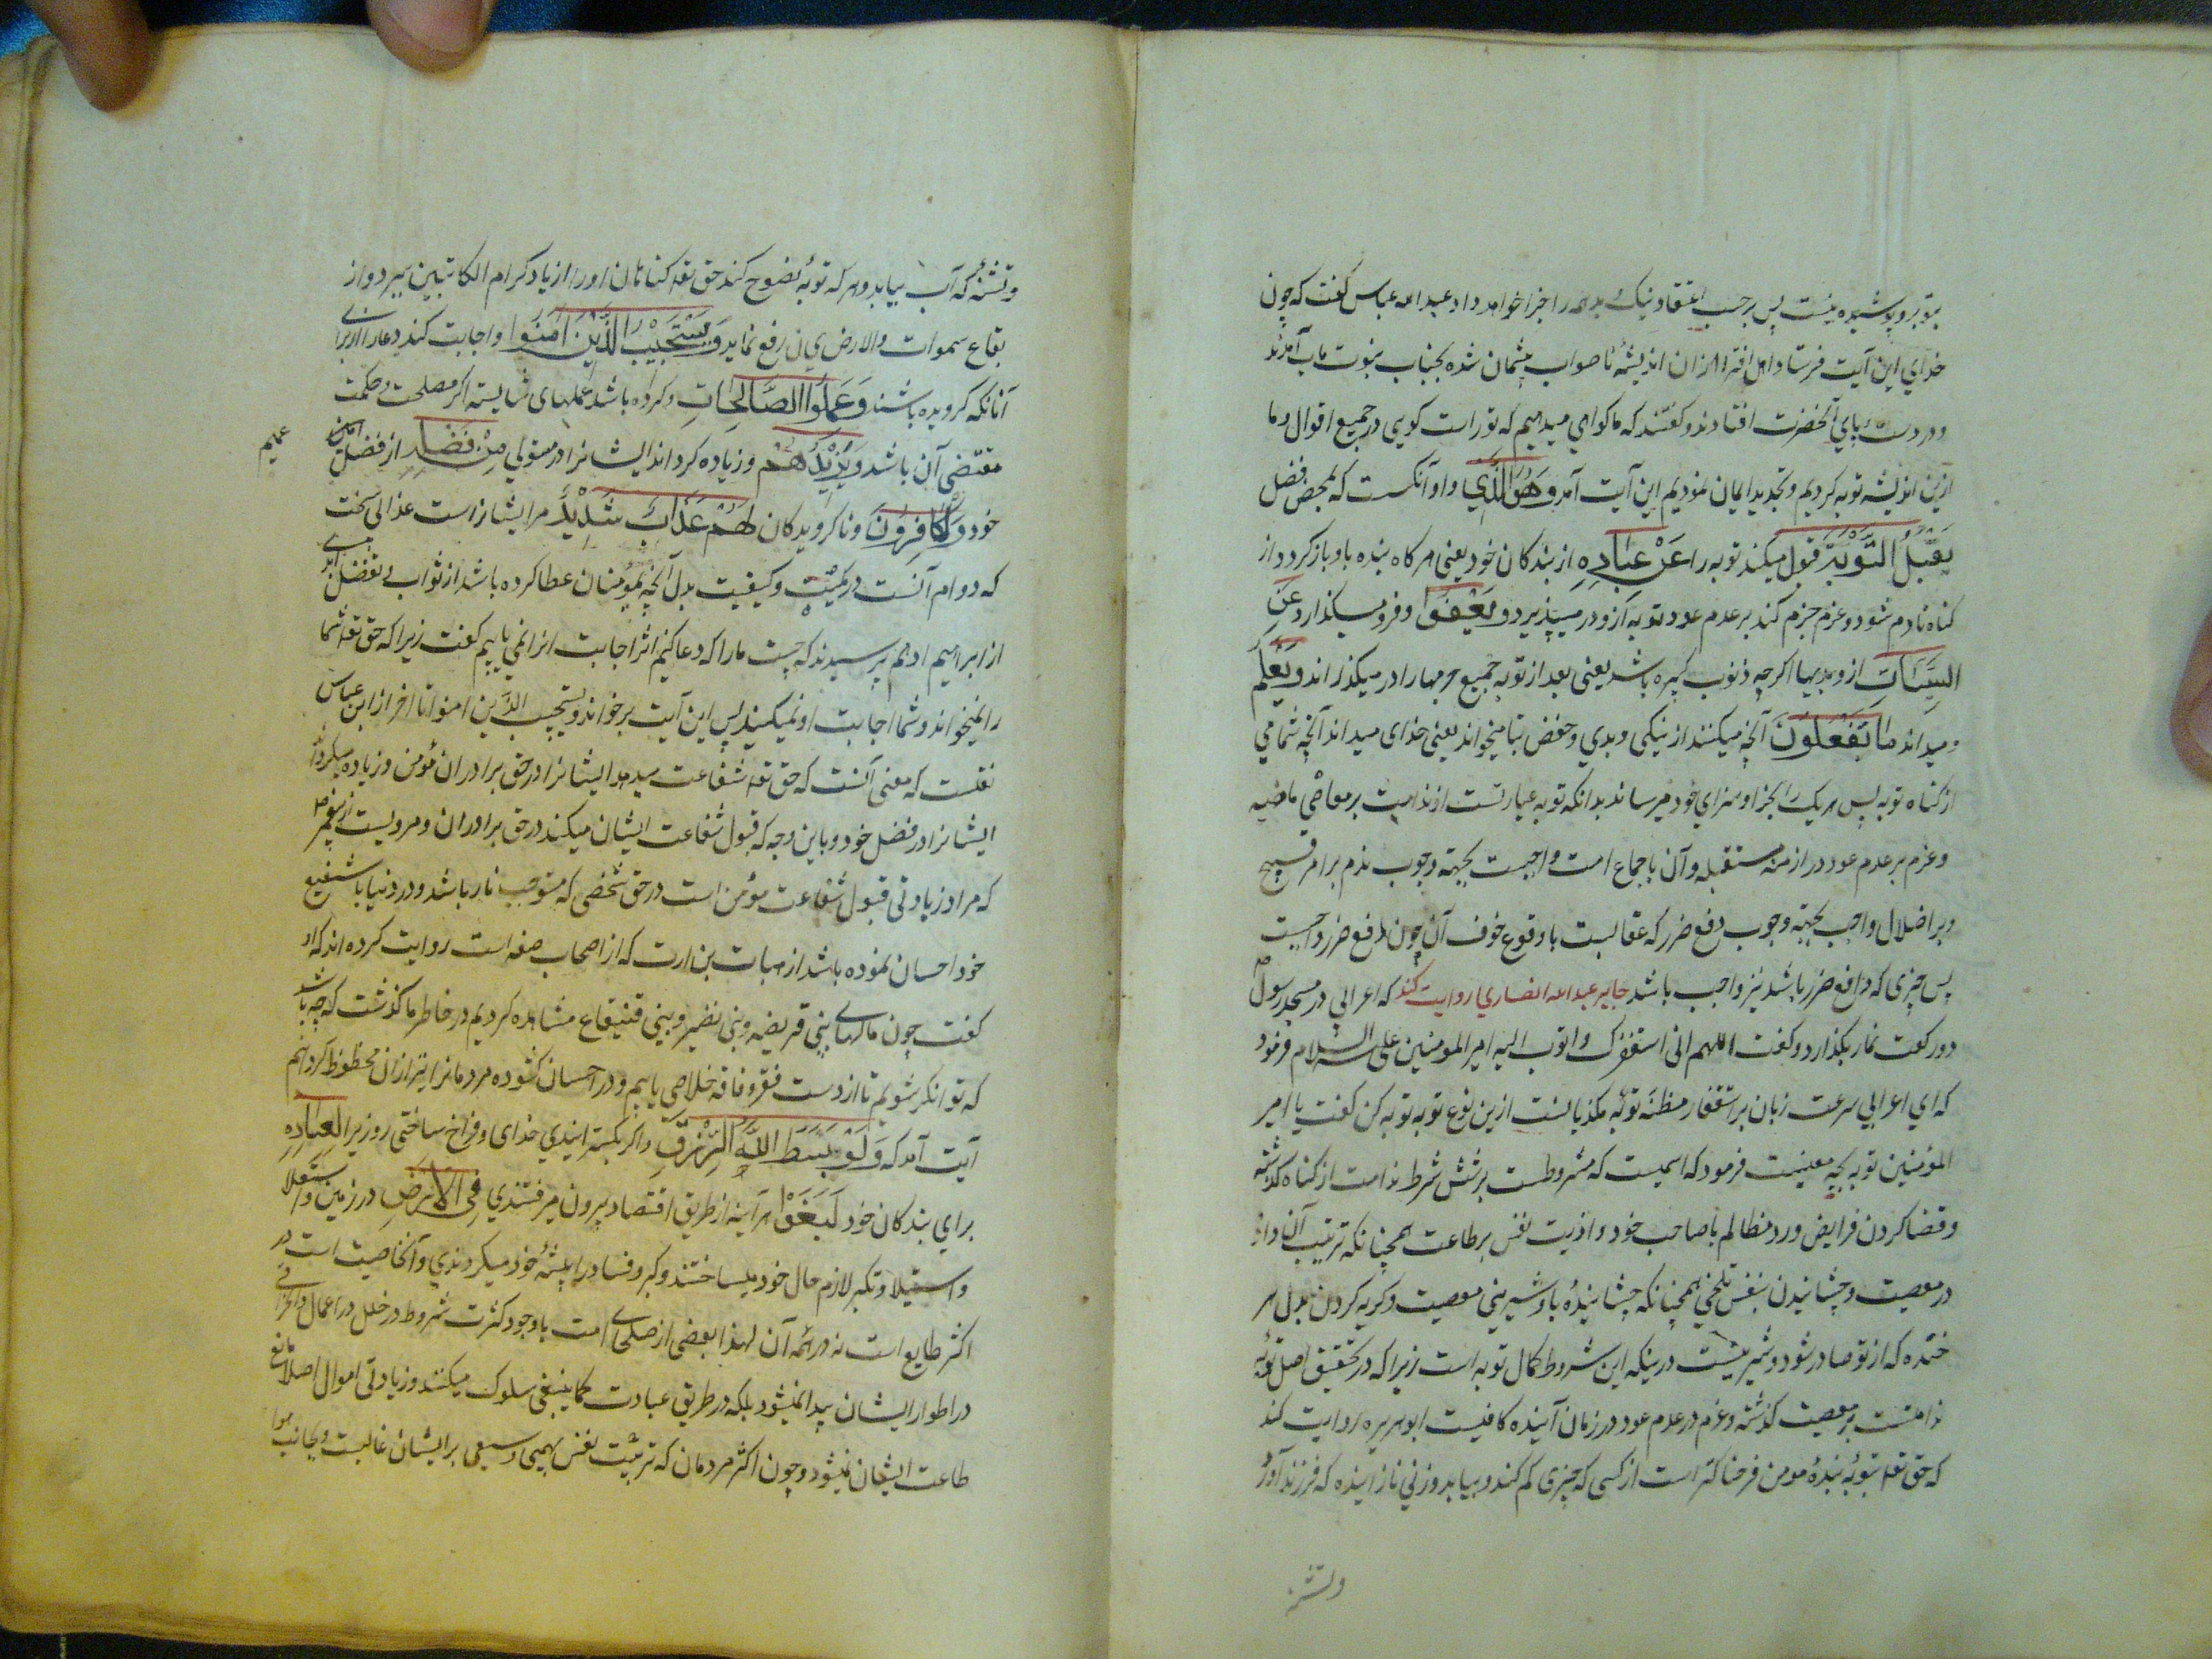 بتو برو پوشیده نیست پس برحسب اعتقاد نیک و بد همه را جزا خواهد داد عبدالله عباس گفت که چون
خدای این آیت فرستاد اهل افترا ازان اندیشهٔ ناصواب پشمان شده بجناب نبوت ماب آمدند
و در دست و پای آنحضرت افتادند و گفتند که ما گواهی میدهیم که تو راست گویی در جمیع اقوال و ما
ازین اندیشه توبه کردیم و تجدید ایمان نمودیم این آیت آمد وَهُوَ الَّذِي و او آنکست که بمحض فضل
يَقْبَلُ التَّوْبَةَ قبول میکند توبه را عَنْ عِبَادِهِ از بندکان خود یعنی هر کاه بنده باو باز کردد و از
کناه نادم شود و عزم جزم کند بر عدم عود توبه او را در میپذیرد وَيَعْفُوا و فرو میکذارد عَنِ
السَّيِّئَاتِ از وبدیها اکرچه ذنوب کبیره باشد یعنی بعد از توبه جمیع جرمها را در میکذراند وَيَعْلَمُ
و میداند مَا تَفْعَلُونَ آنچه میکنند از نیکی و بدی و حفص بتا میخواند یعنی خدای میداند آنچه شما میکنید
از کناه و توبه پس هر یک را بجزا و سزای خود میرساند بدانکه توبه عبارتست از ندامت بر معاصی ماضیه
و عزم بر عدم عود در ازمنه مستقبله و آن باجماع امت واجبست بجهة وجوب ندم بر امر قبیح
و بر اخلال واجب بجهة وجوب دفع ضرر که عقابست با وقوع خوف آن چون دفع ضرر واجبست
پس چیزی که دافع ضرر باشد نیز واجب باشد جابر عبدالله انصاری روایت کند که اعرابی در مسجد رسول
دو رکعت نماز بکذارد و کفت اللهم انی استغفرک و اتوب الیه امیر المومنین علیه السلام فرمود
که ای اعرابی سرعت زبان بر استغفار مظنه توبه مکذبانست ازین نوع توبه توبه کن کفت یا امیر
المؤمنین توبه بچه معنیست فرمود که اسمیست که مشروطست بر شش شرط ندامت از کناه کذشته
و قضا کردن فرایض و رد مظالم با صاحب خود و اذیت نفس بر طاعت همچنانکه تربیت آن داده
در معصیت و چشانیدن نفس تلخی همچنانکه چشانیدهٔ باو شیرینی معصیت و کریه کردن بدل هر
خنده که از تو صادر شود و شبهه نیست درینکه این شروط کمال توبه است زیرا که در تحقیق اصل توبه
ندامتست بر معصیت کذشته و عزم در عدم عود در زمان آینده کافیست ابوهریره روایت کند
که حق تعه بتوبهٔ بندهٔ مومن فرحناکتر است از کسی که چیزی کم کند و بیابد و زنی نازاینده که فرزند آورد
وتشنهٔ
وتشنهٔ که آب بیابد و هر که توبهٔ نصوح کند حق تعه کناهان او را از یاد کرام الکاتبین ببرد و از
بقاع سموات والارض بی ن رفع نماید وَيَسْتَجِيبُ الَّذِينَ آمَنُوا و اجابت کند دعا را از برای
آنانکه کرویده باشند وَعَمِلُوا الصَّالِحَاتِ و کرده باشند عملهای شایسته اکر مصلحت و حکمت
مقتضی آن باشد وَيَزِيدُهُمْ و زیاده کرداند ایشانرا در مثوبی مِنْ فَضْلِهِ از فضل
عمیم
خود وَالْكَافِرُونَ و ناکرویدکان لَهُمْ عَذَابٌ شَدِيدٌ مر ایشانراست عذابی سخت
که دوام آنست در کمیت و کیفیت بدل آنچه بمؤمنان عطا کرده باشد از ثواب بی تفضل
از ابراهیم ادهم پرسیدند که چیست ما را که دعا کنیم اثر اجابت انرا نمی یابیم کفت زیرا که حق تعه شما
را میخواند و شما اجابت او نمیکنید پس این آیت برخواند ویستجیب الذین امنوا تا اخر از ابن عباس
نقلست که معنی آنست که حق تعه شفاعت میدهد ایشانرا در حق برادران مؤمن و زیاده میکرداند
ایشانرا در فضل خود و باین وجه که قبول شفاعت ایشان میکند در حق برادران و مرویست از پیغمبر ص
که مراد زیادتی قبول شفاعت مؤمن است در حق شخصی که مستوجب نار باشد و در دنیا با شفیع
خود احسان نموده باشد از خباب بن ارت که از اصحاب صفه است روایت کرده اند که او
کفت چون مالهای بنی قریضه و بنی نضیر و بنی قنیقاع مشاهده کردیم در خاطر ما کذشت که چه باشد
که توانکر شویم تا از دست فقر و فاقه خلاصی یابیم و در احسان کشوده مردمانرا نیز ازان محظوظ کردانیم
آیت آمد که وَلَوْ بَسَطَ اللَّهُ الرِّزْقَ و اکر بکسترانیدی خدای و فراخ ساختی روزیرا لِعِبَادِهِ
برای بندکان خود لَبَغَوْا هر آینه از طریق اقتصاد بیرون میرفتندی فِي الْأَرْضِ در زمین و استعلا
و استیلا و تکبر لازم حال خود میساختند و کبر و فساد را پیشهٔ خود میکردندی و آنخاصیت است در
اکثر طبایع است نه در همه آن لهذا بعضی از صلحای امت با وجود کثرت شروط در خلل در اعمال
در اطوار ایشان پیدا نمیشود بلکه در طریق عبادت کما ینبغی سلوک میکنند و زیادتی اموال اصلا مانع
طاعت ایشان نمیشود و چون اکثر مردمان که تربیت نفس بهیمی و سبعی بر ایشان غالبست و بجانب هوا